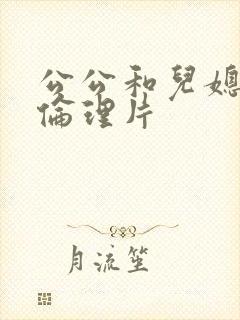 公公和兒媳
倫理片
月流笙